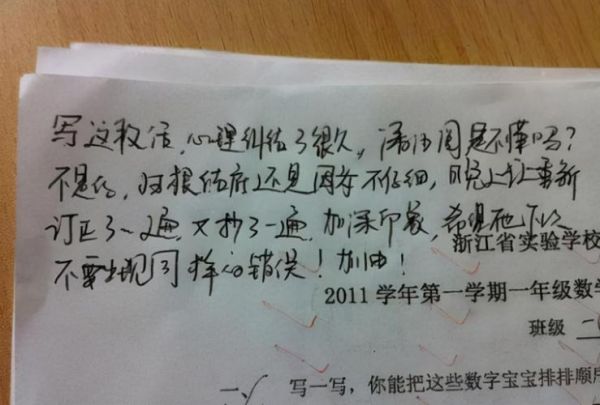 写这段话,心理纠结了很久,潘泊周是不懂吗?
不是的,归根结底还是因为不仔细,昨晚上让重新
订正了一遍,又抄了一遍,加深印象,希望他下次
不要出现同样的错误!加油!
浙江省实验学校
2011 学年第一学期一年级数学
班级 二
一、 写一写,你能把这些数字宝宝排排顺序